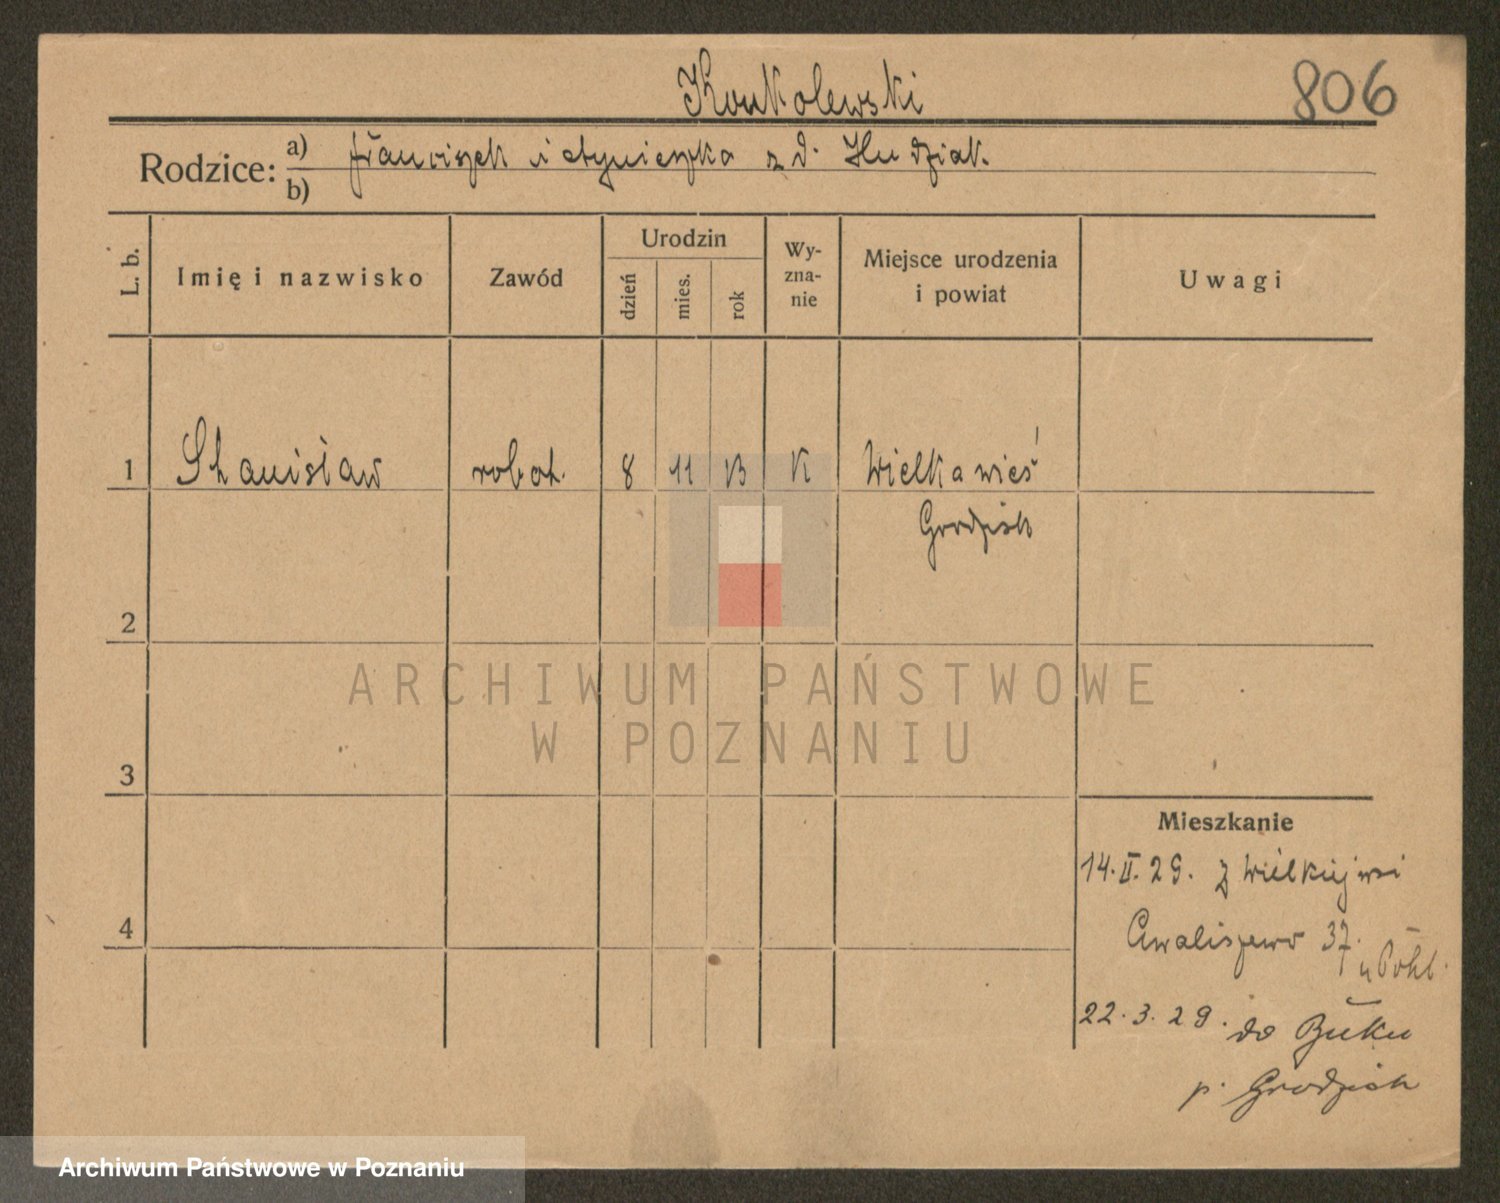 Konkolewski
806
Rodzice: a) Franciszek i Agnieszka z d. Hudziak.
b)
L. b.
Imię i nazwisko
Zawód
Urodzin
dzień
mies.
rok
Wy-
zna-
nie
Miejsce urodzenia
i powiat
Uwagi
1 Stanisław robot. 8 11 13 K Wielka wieś
Grodzisk
2
ARCHIWUM PAŃSTWOWE
W POZNANIU
3
Mieszkanie
14.II.29. z Wielkiej wsi
4
Chwaliszewo 37.
22.3.29. do Buku
p. Grodzisk
Archiwum Państwowe w Poznaniu